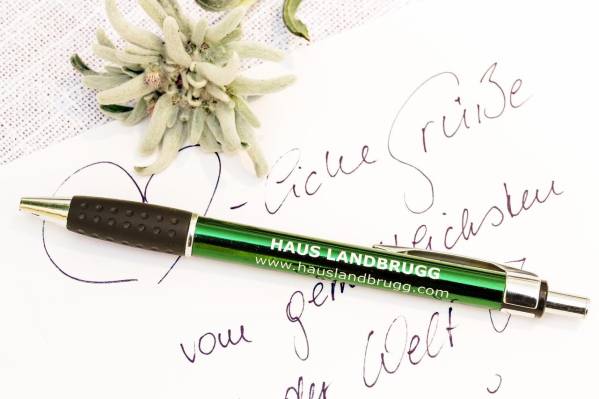 -liche Grüße
HAUS LANDBRUGG
www.hauslandbrugg.com
vom gem lichsten
der Welt